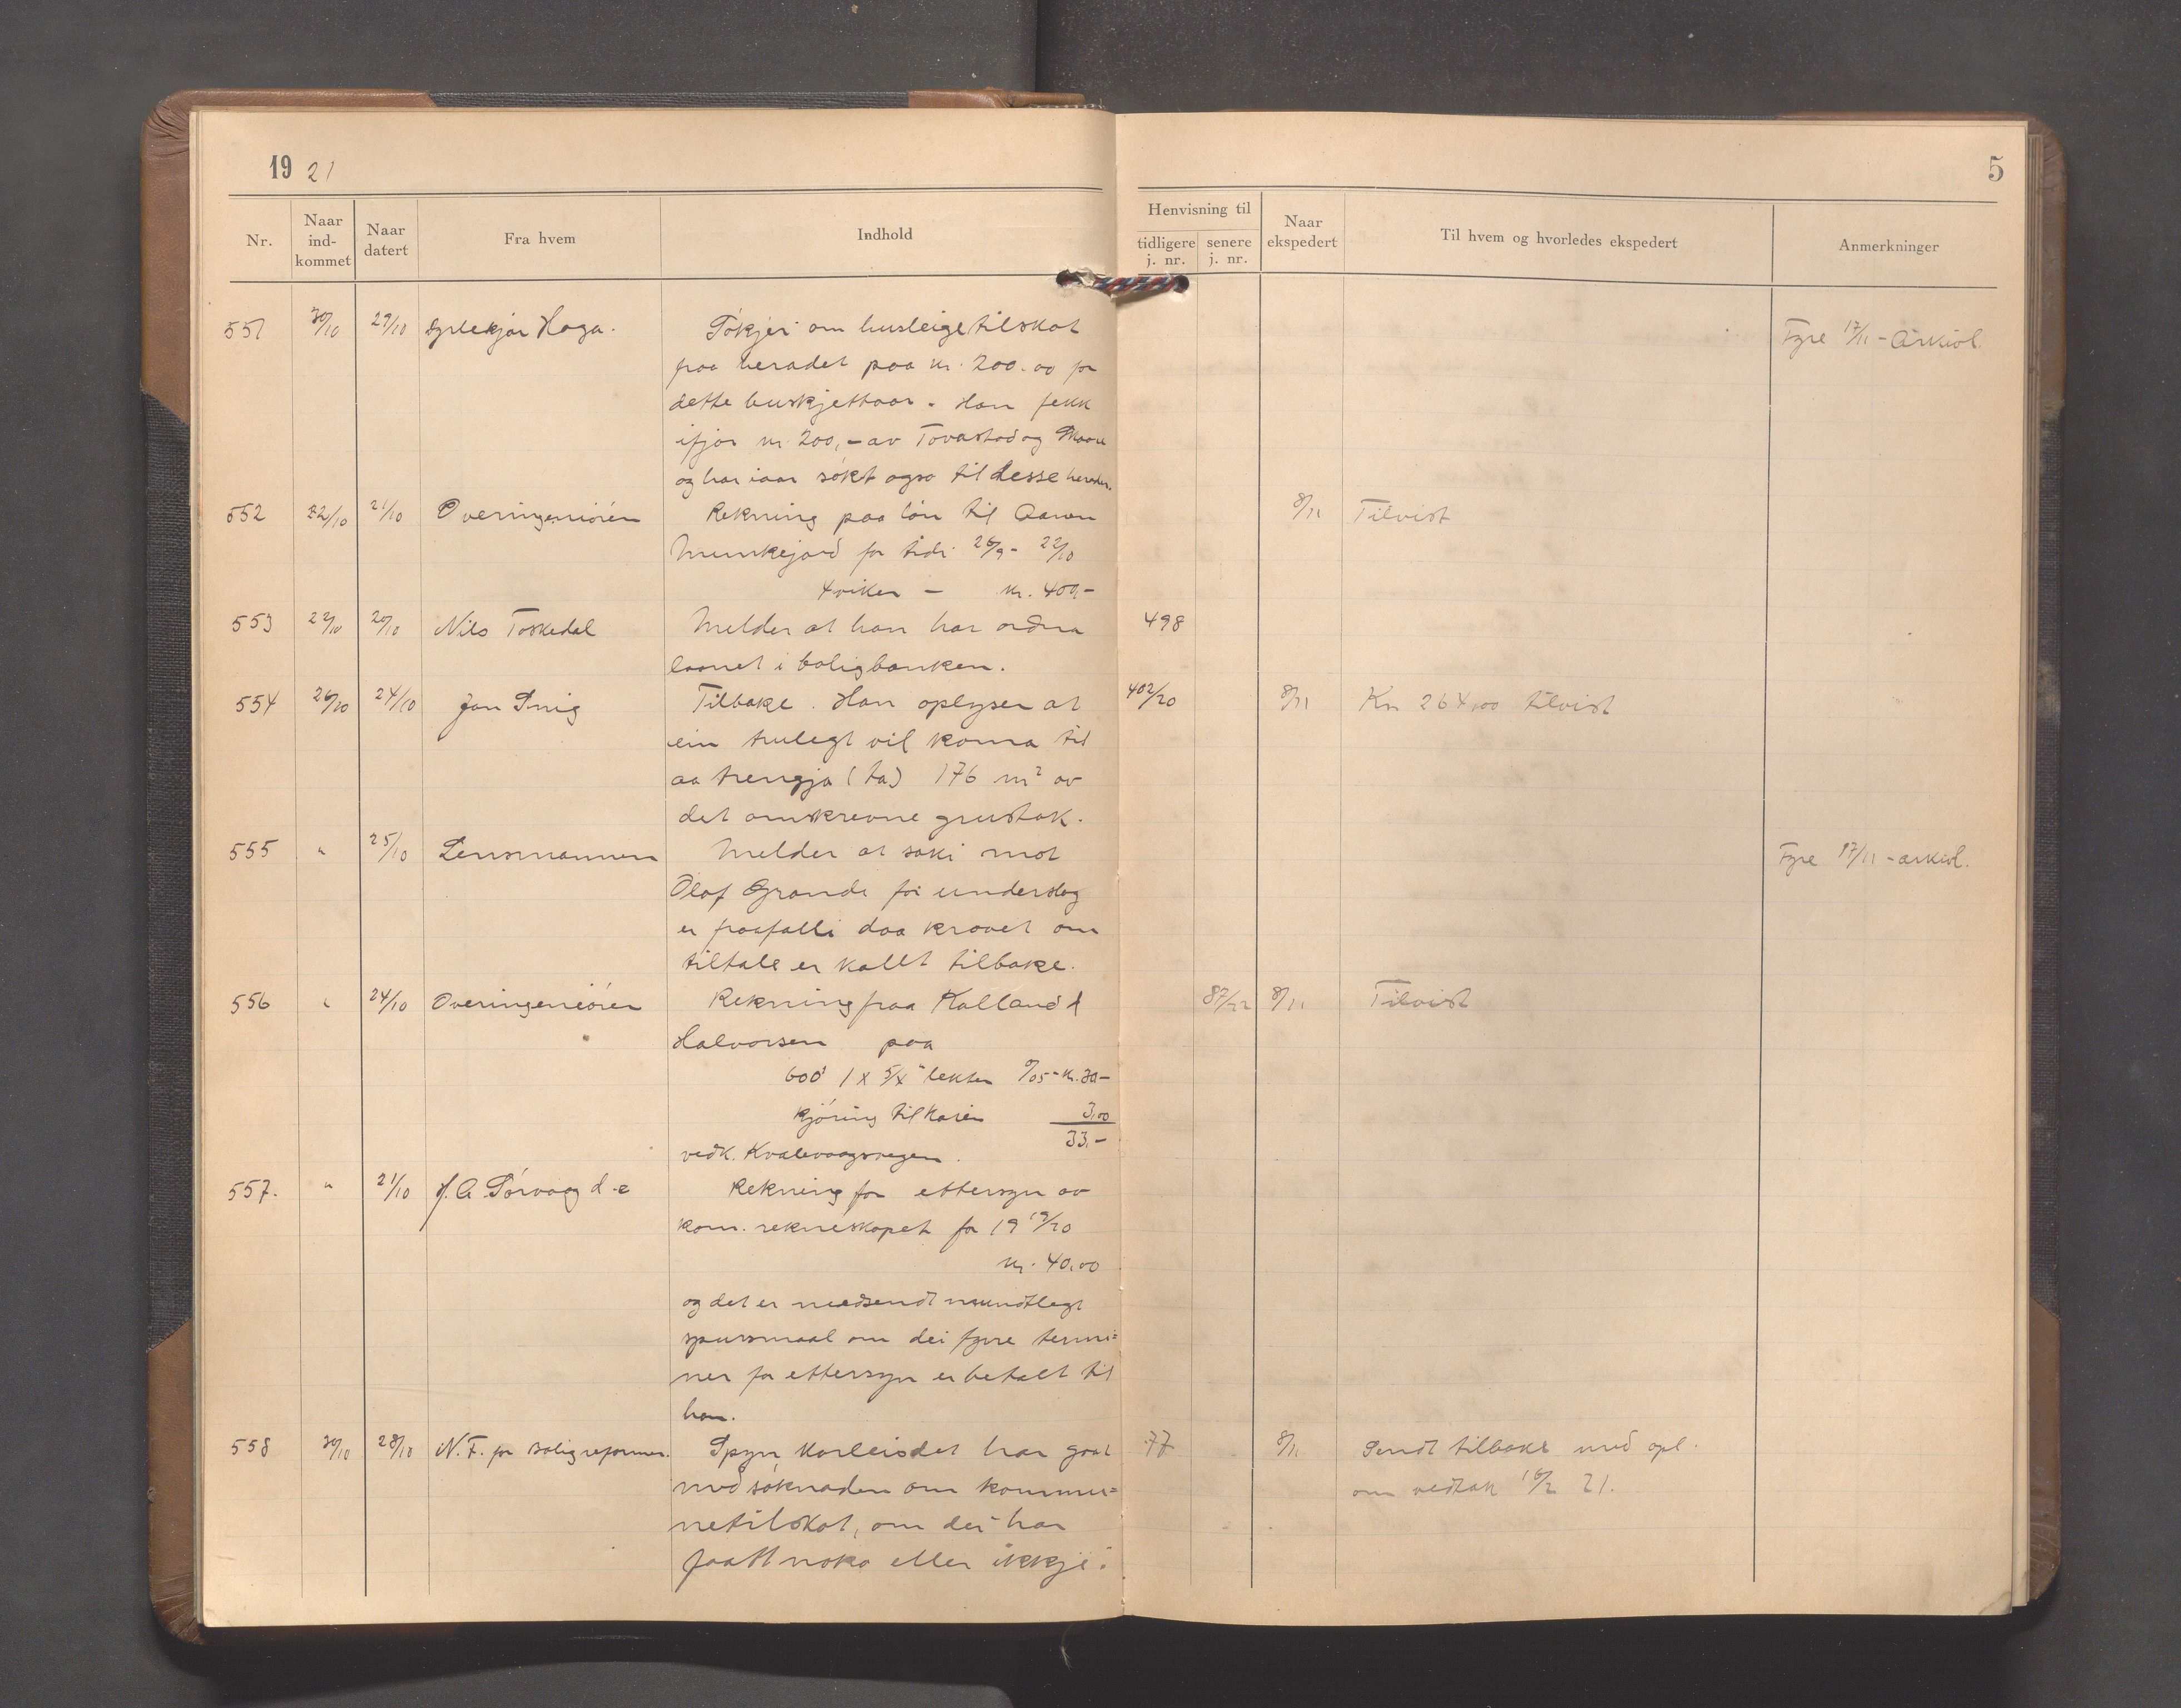 19 21
5
Nr.
Naar ind-kommet
Naar datert
Fra hvem
Indhold
Henvisning til
tidligere j. nr.
senere j. nr.
Naar ekspedert
Til hvem og hvorledes ekspedert
Anmerkninger
551 30/10 29/10 Haga. Søkjer om husleigetilskot Fyre 17/11 - Arkivl.
fraa heradet paa kr. 200.00 for
dette buskjettaar. Han fekk
ifjor kr 200,- av Torvastad og Skaare
og har iaar søkt ogso til desse
552 22/10 21/10 Overingeniören Rekning paa lön til Aanen 8/11 Tilvist
Munkejord for tidi 26/9 - 22/10
4 viker - kr. 400,-
553 22/10 20/10 Nils Toskedal Melder at han har ordna 498
laanet i boligbanken.
554 26/10 24/10 Jon Snig Tilbake. Han oplyser at 402/20 8/11 Kr 264,00 tilvist
ein trulegt vil koma til
aa trengja (ta) 176 m² av
det omskrevne grustak.
555 " 25/10 Lensmannen Melder at saki mot Fyre 17/11 - arkivl.
Olaf Grande for underslag
er fraafalli daa kravet om
tiltale er kallt tilbake.
556 " 24/10 Overingeniören Rekning fraa Kalland & 87/22 8/11 Tilvist
Halvorsen paa
600' 1 x 5/4" lekter 0/05 - kr. 30 -
kjöring til kaien 3,00
33,-
vedk. Kvalevaagsvegen.
557. " 21/10 J. A Sörvaag d.e Rekning for ettersyn av
kom. rekneskapet for 19 19/20
kr. 40,00
og det er medsendt mundtlegt
spursmaal om dei fyrre termi=
ner for ettersyn er betalt til
han.
558 30/10 28/10 N. F. for boligreformer. Spyr korleis det har gaat 77 8/11 Sendt tilbake med opl.
med söknaden om kommu= om vedtak 16/2 21.
netilskot, om dei har
faatt noko eller ikkje.